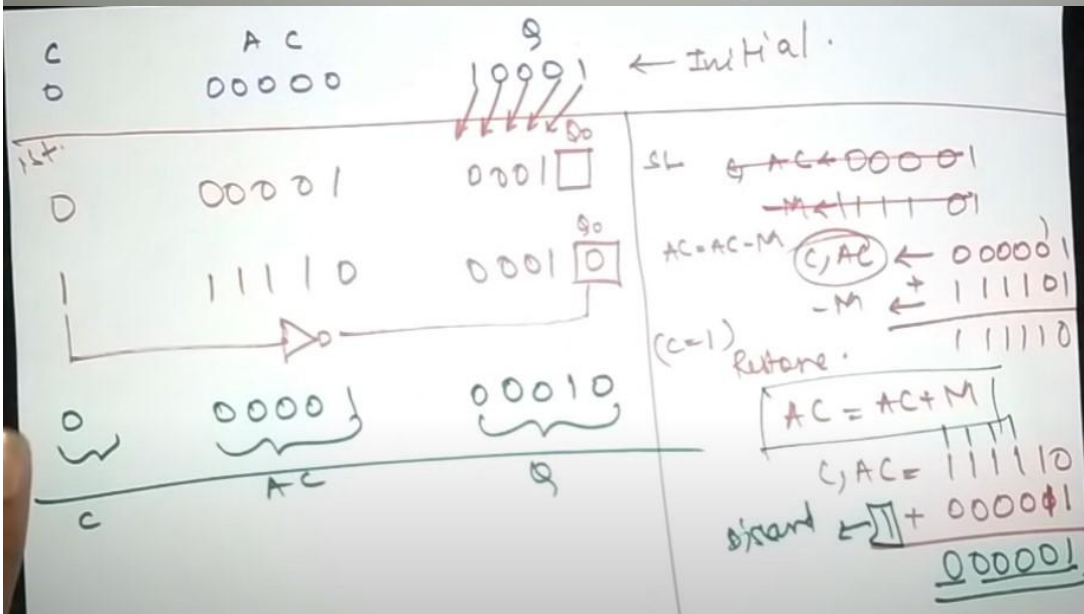 C A C Q
0 00000 10001 ← Initial.
1st.
0 00001 0001 Q0
1 11110 0001 0 Q0
0 00001 00010
C AC Q
SL AC ← 00001
-M ← 1111 01
AC=AC-M C, AC ← 000001
-M ← + 111101
111110
(C=1) Restore.
AC = AC + M
C, AC = 111110
Discard ← 1 + 000011
000001